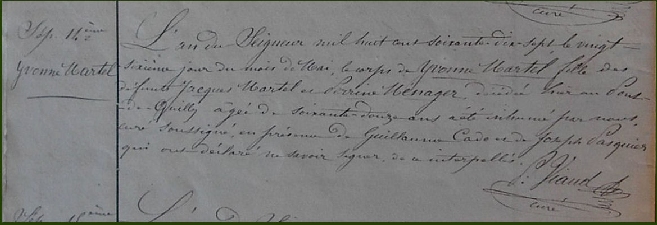 curé
Sép. 14ème
L'an du Seigneur mil huit cent soixante dix sept le vingt
Yvonne Martel
seizième jour du mois de Mai, le corps de Yvonne Martel fille des
défunts Jacques Martel et Perrine Ménager décédé hier au
de Quilly âgée de soixante-douze ans a été inhumé par nous,
curé soussigné, en présence de Guillaume Cado et de Joseph Pasquier
qui ont déclaré ne savoir signer, de ce interpellés.
Viaud
curé
Sép. 15ème
L'an du